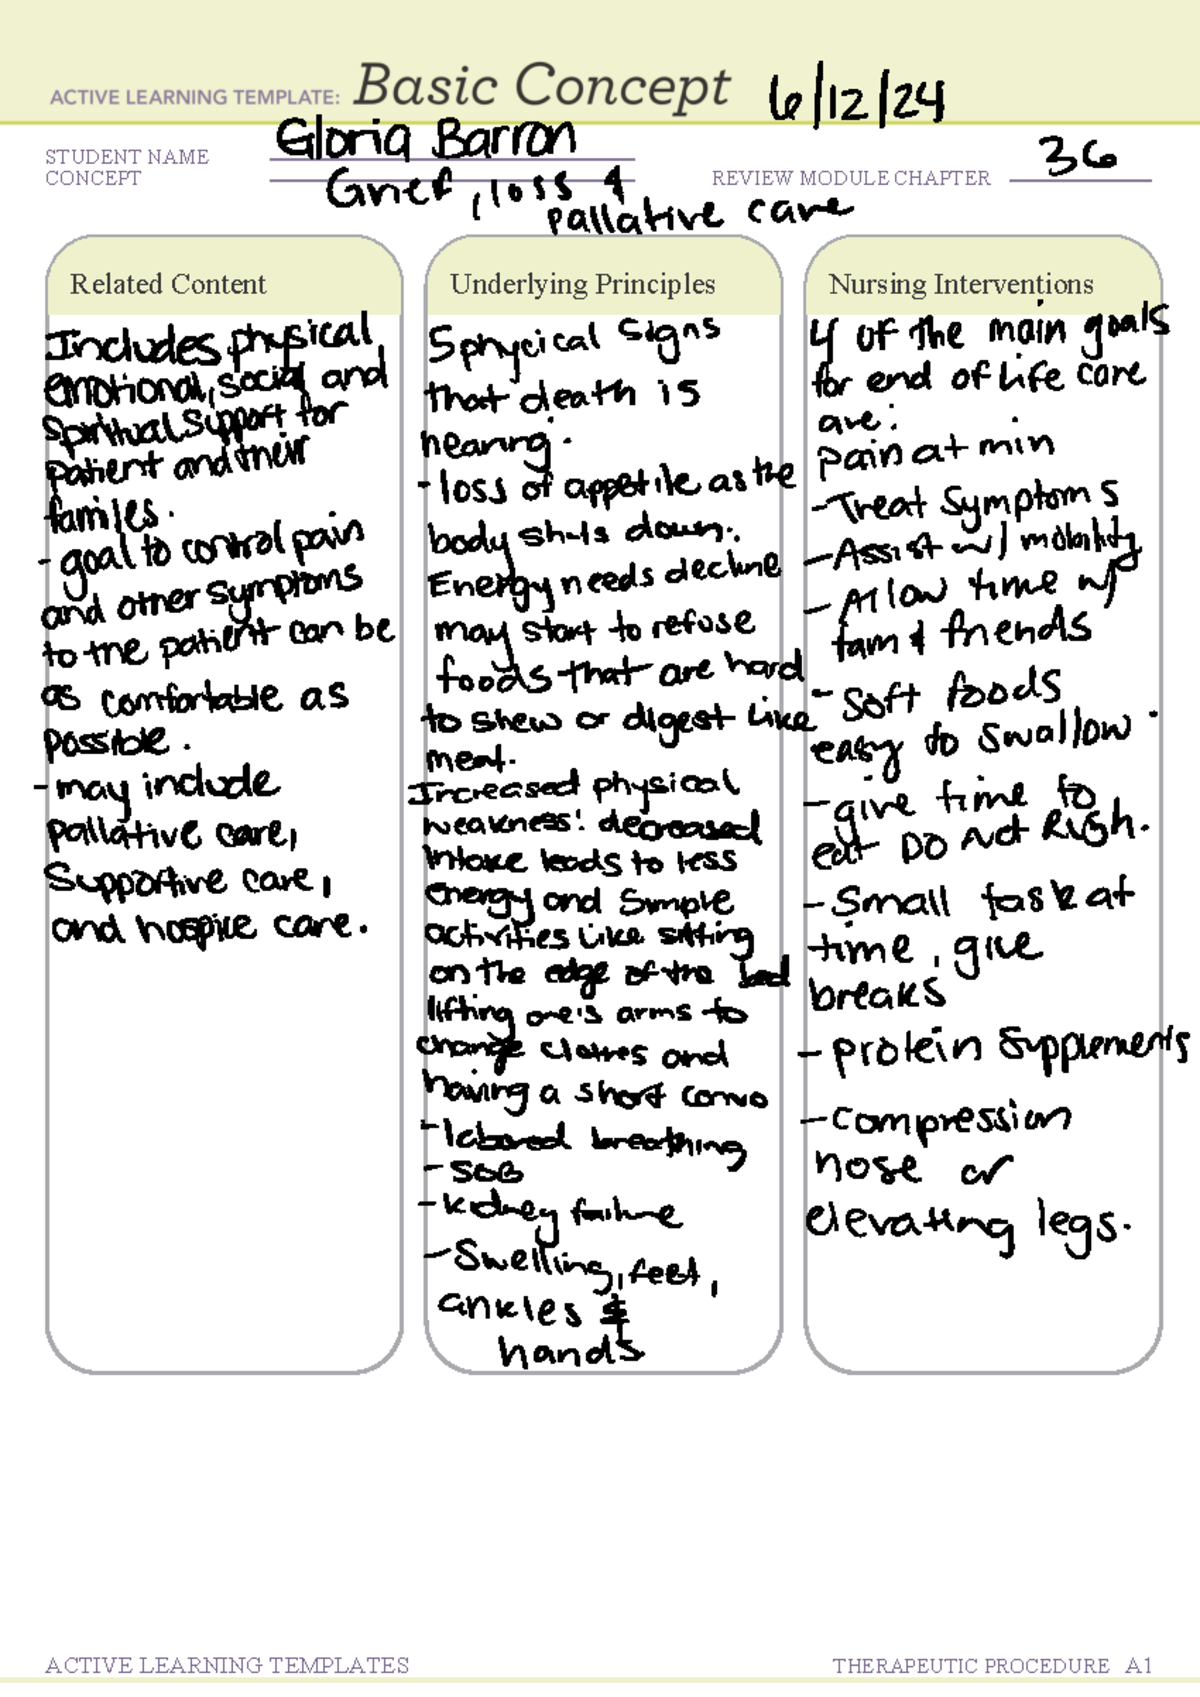 ACTIVE LEARNING TEMPLATE: Basic Concept 6/12/24
STUDENT NAME Gloria Barron
CONCEPT Grief, loss &
pallative care
REVIEW MODULE CHAPTER 36
Related Content
Includes physical,
emotional, social and
Spiritual support for
patient and their
familes.
- goal to control pain
and other symptoms
to the patient can be
as comfortable as
possible.
- may include
pallative care,
Supportive care,
and hospice care.
Underlying Principles
5 phycical signs
that death is
nearing.
- loss of appetite as the
body shuts down.
Energy needs decline
may start to refuse
foods that are hard
to shew or digest like
meat.
Increased physical
weakness: decreased
intake leads to less
energy and simple
activities like sitting
on the edge of the bed
lifting one's arms to
change clothes and
having a short convo
- labored breathing
- SOB
- kidney failure
- Swelling, feet,
ankles &
hands
Nursing Interventions
4 of the main goals
for end of life care
are:
pain at min
- Treat Symptoms
- Assist w/ mobility
- Allow time w/
fam & friends
- Soft foods
easy to swallow.
- give time to
eat DO Not
- Small task at
time, give
breaks
- protein supplements
- compression
hose or
elevating legs.
ACTIVE LEARNING TEMPLATES
THERAPEUTIC PROCEDURE A1